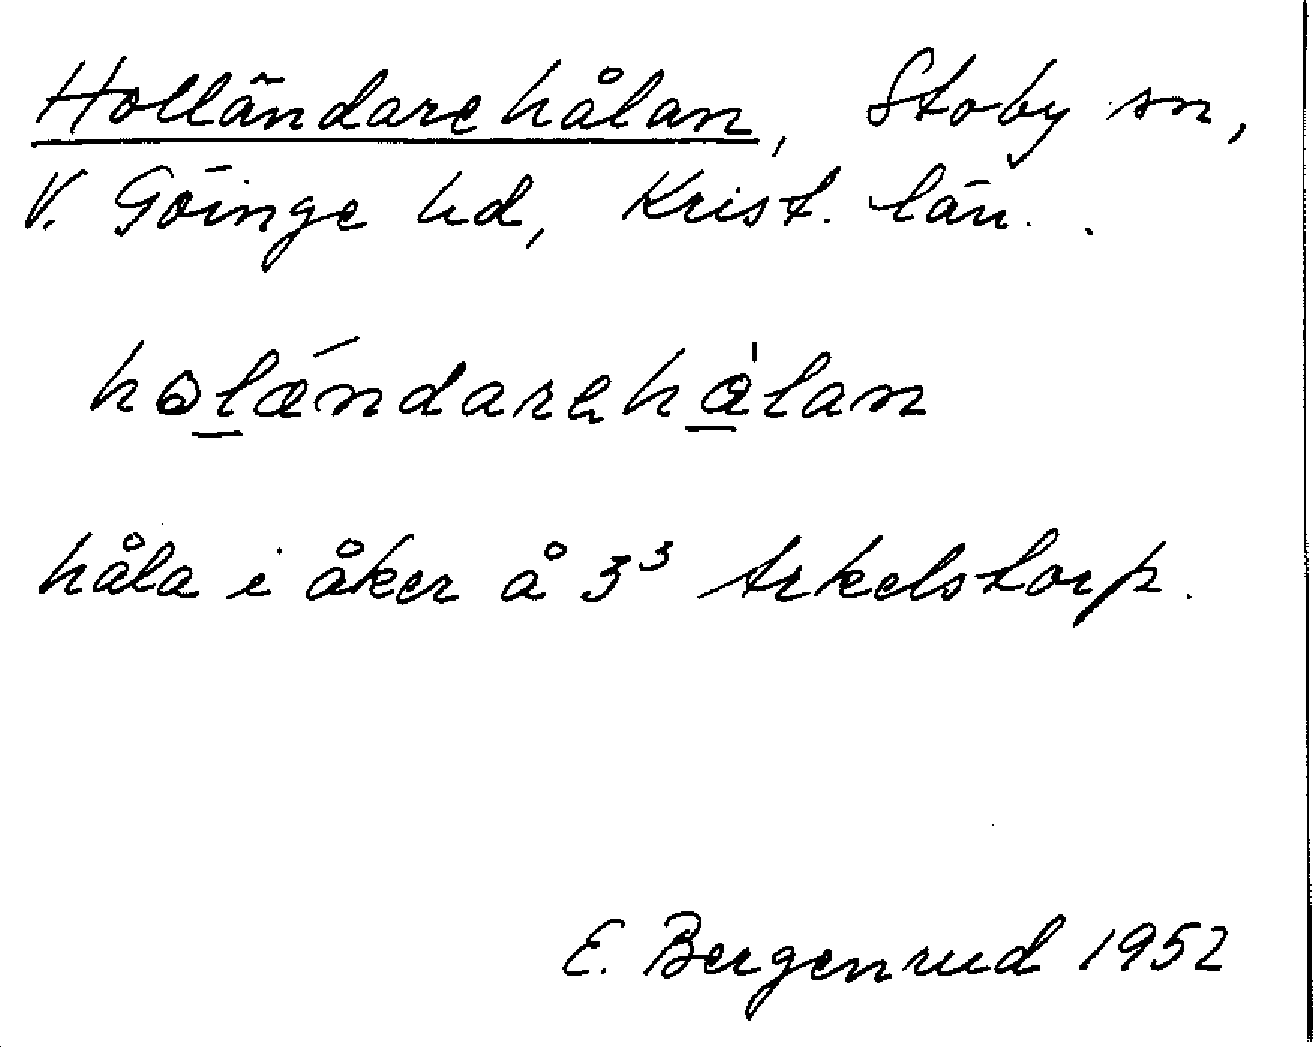 Holländarehålan, Stoby sn,
V. Göinge hd, Krist. län.
holæ´ndarehålan
håla i åker å 3³ Arkelstorp.
E. Bergenrud 1952